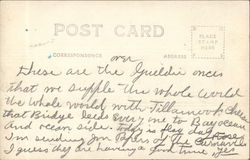 POST CARD
CORRESPONDENCE ADDRESS
PLACE STAMP HERE
over
These are the ones
that we supple the whole World
the whole world with Tillamook Cheese
that Bridge leeds every one to Bayocean
and ocean side. to day is flag day
I'm sending you papers of the
I guess they are having a good time